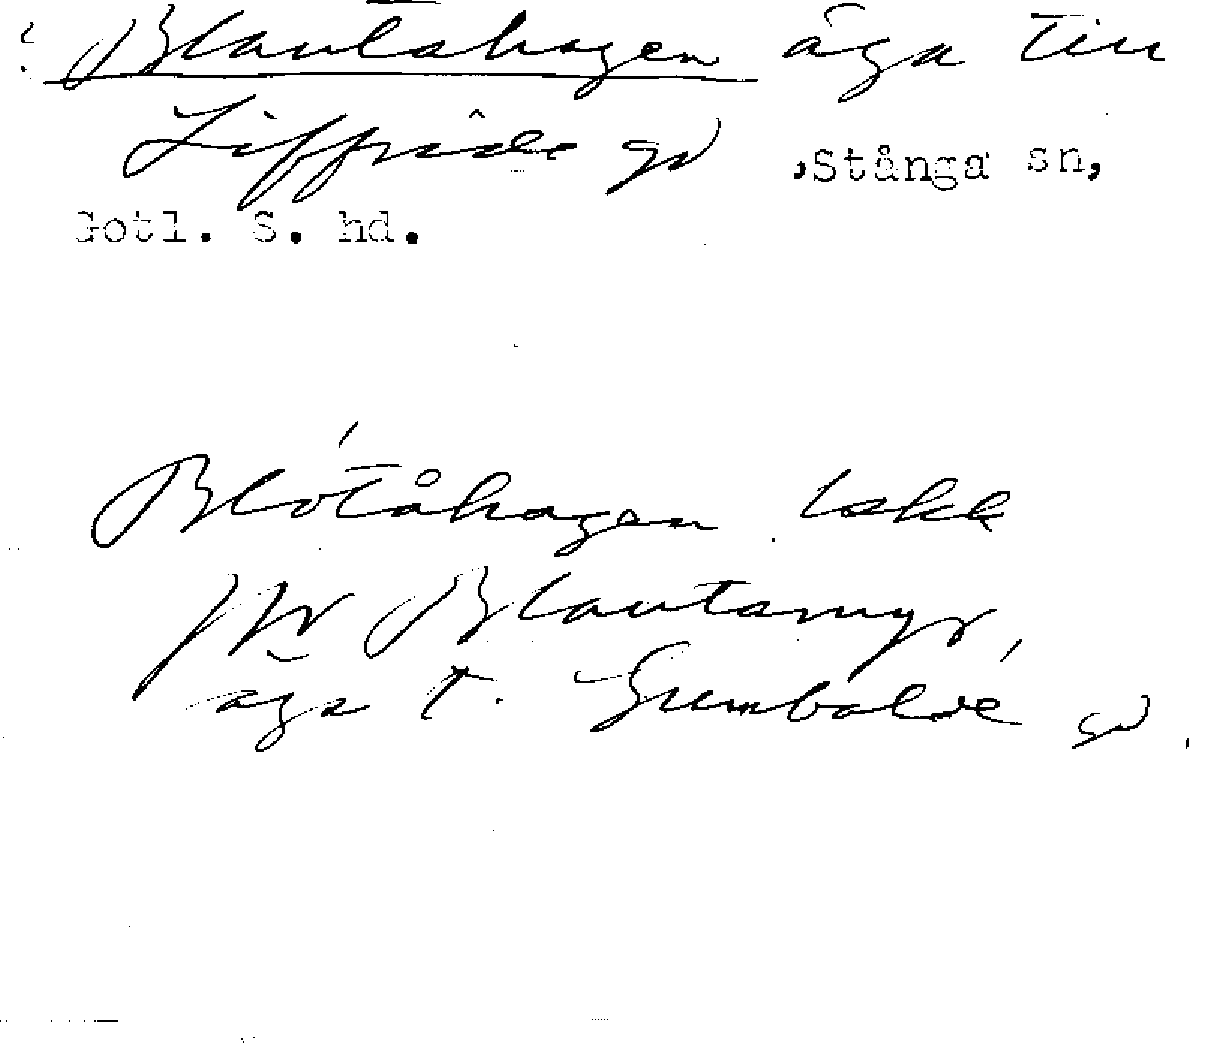 : Blautahagen äga till
Liffride gd ,Stånga sn,
Gotl. S. hd.
Blótåhagen
Blautamyr,
äga t. Gumbalde gd.